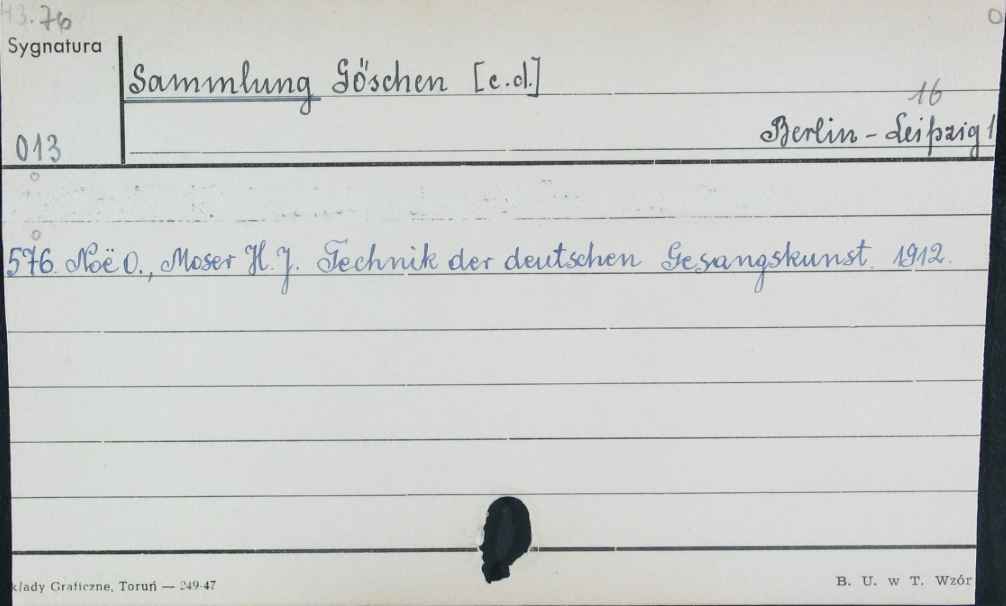 43.76
Sygnatura
Sammlung Göschen [c.d.]
16
Berlin - Leipzig 1
013
576. Noë O., Moser H. J. Technik der deutschen Gesangskunst. 1912.
kłady Graficzne, Toruń — 249-47
B. U. w T. Wzór